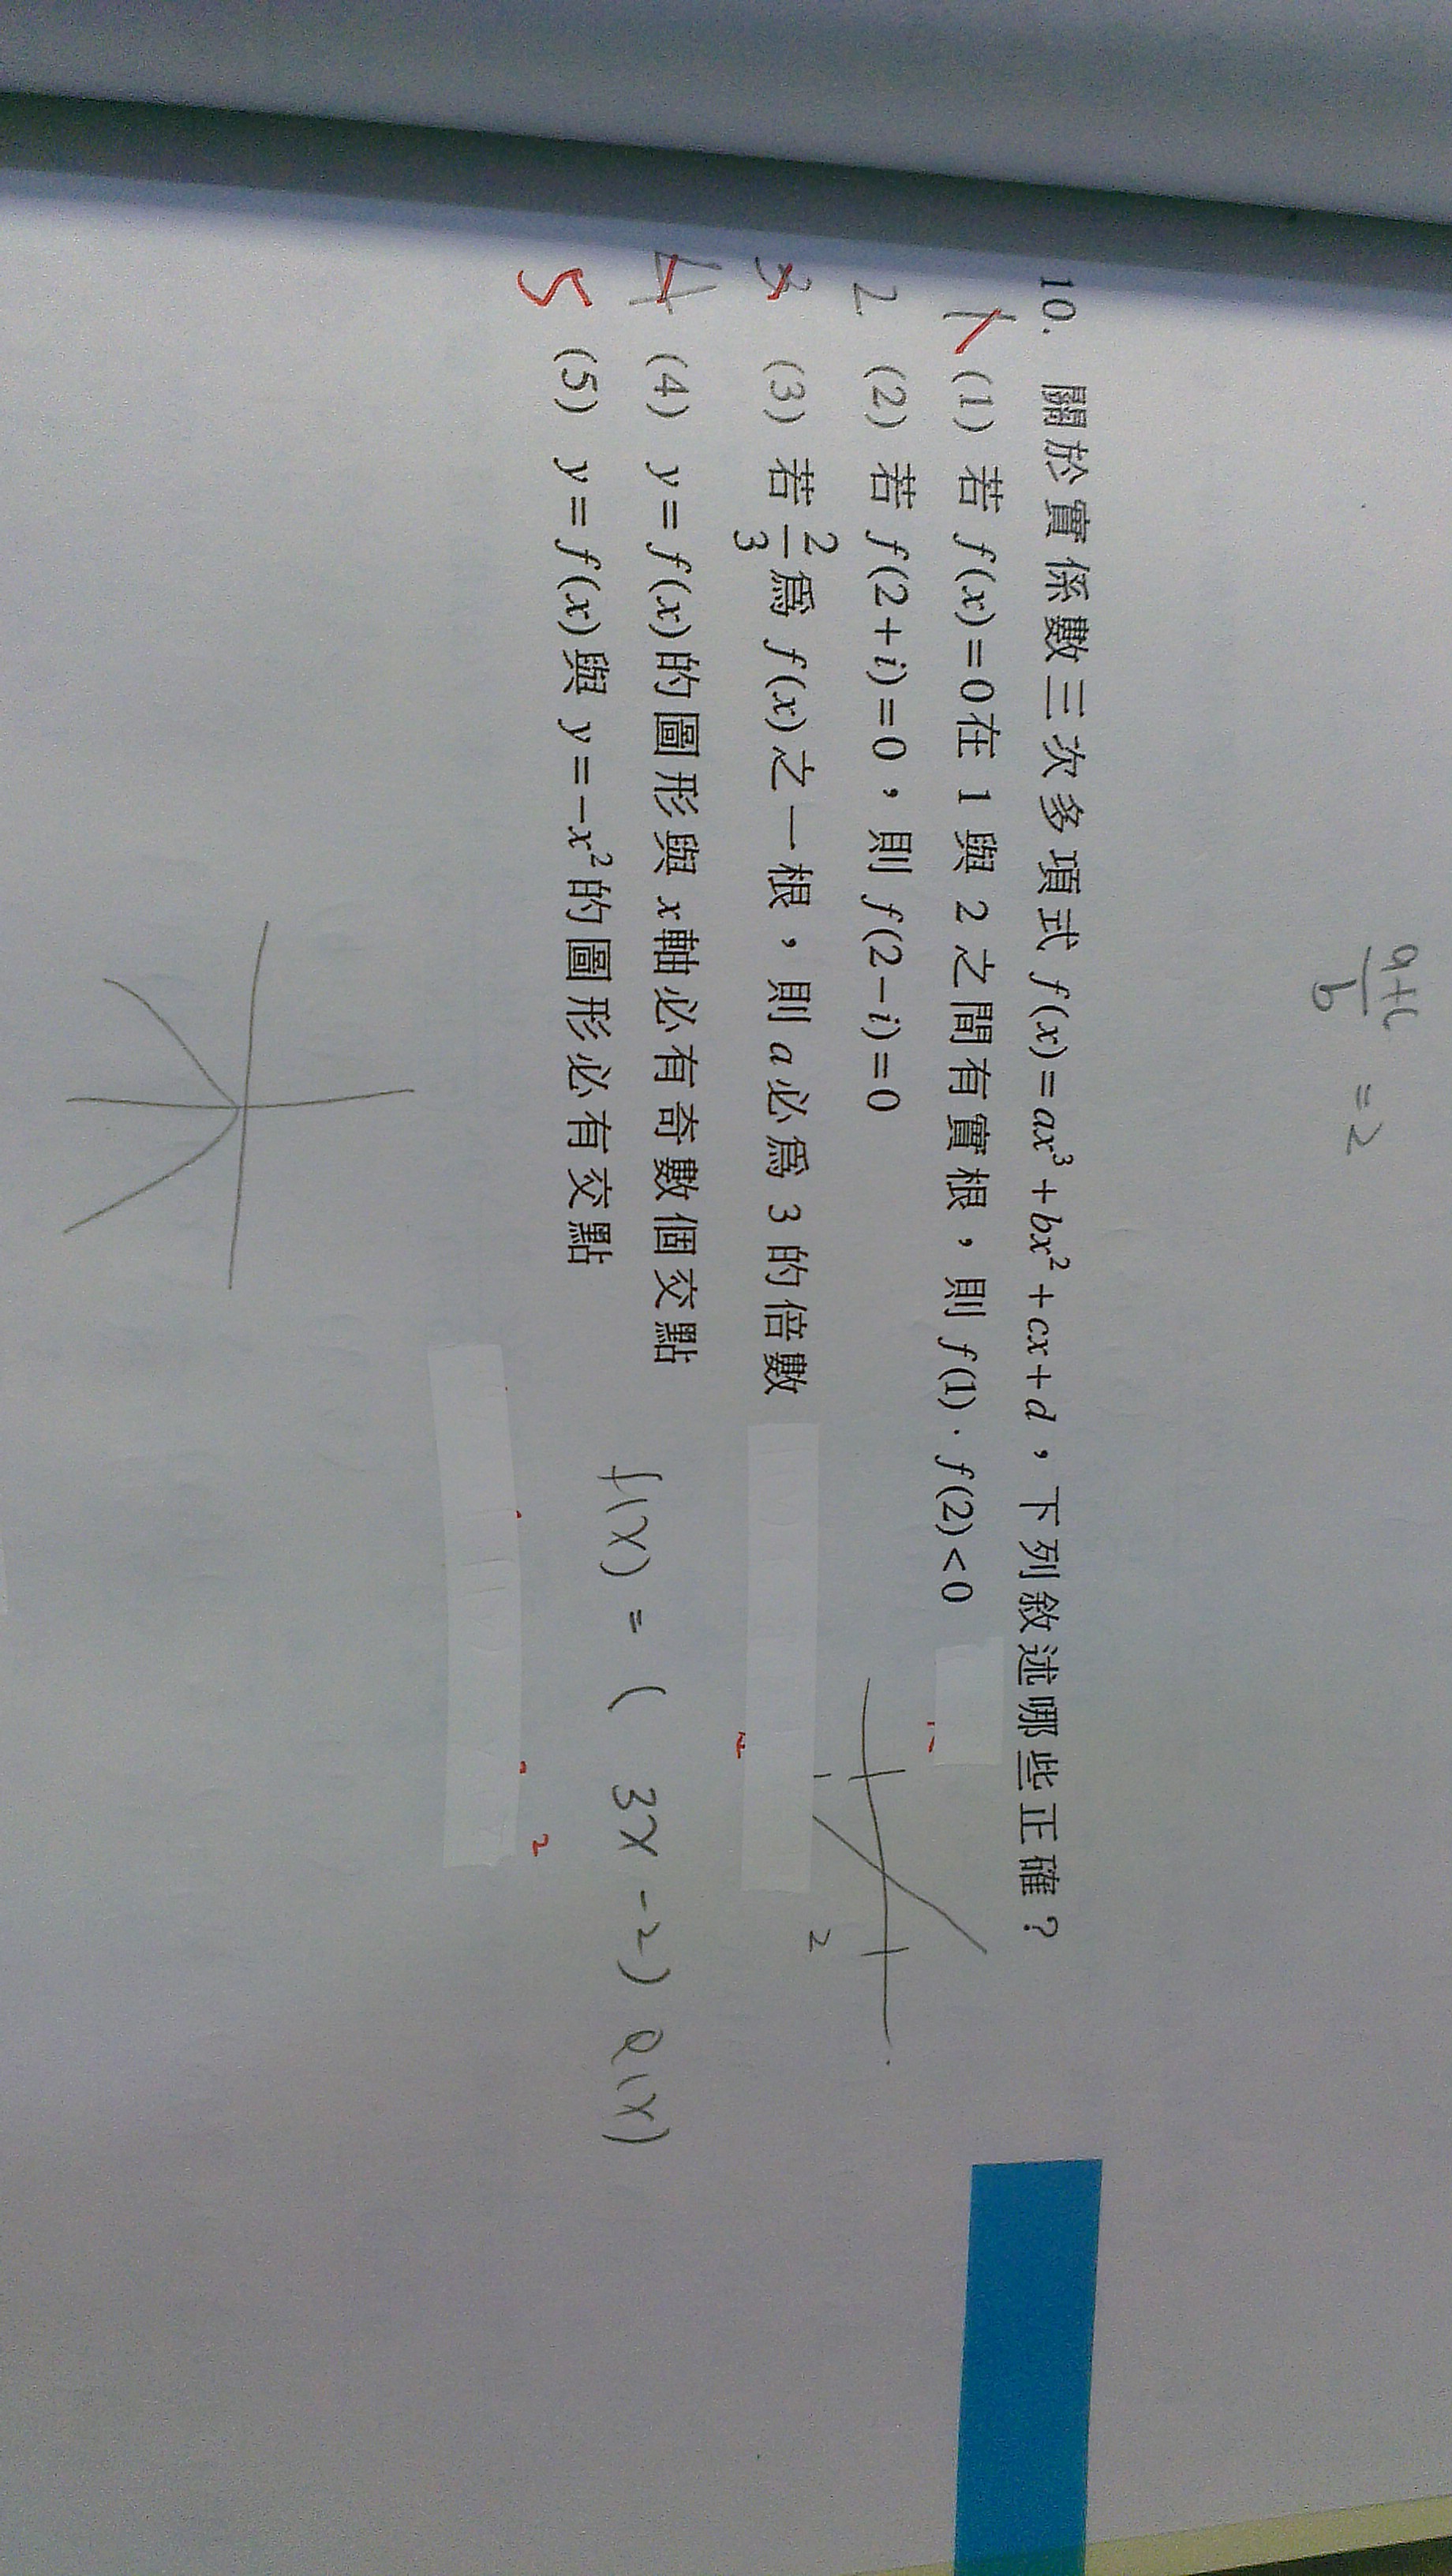 a+c/b = 2
10. 關於實係數三次多項式 f(x)=ax³+bx²+cx+d，下列敘述哪些正確？
1 (1) 若 f(x)=0在 1 與 2 之間有實根，則 f(1)·f(2)<0
2 (2) 若 f(2+i)=0，則 f(2−i)=0
1 2
3 (3) 若 2/3 為 f(x)之一根，則 a 必為 3 的倍數
4 (4) y=f(x)的圖形與 x 軸必有奇數個交點
f(x) = ( 3x -2) Q(x)
5 (5) y=f(x)與 y=−x²的圖形必有交點